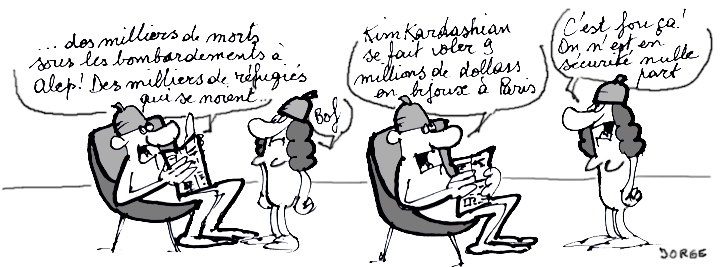 ... des milliers de morts
sous les bombardements à
Alep! Des milliers de réfugiés
qui se noient...
Bof
Kim Kardashian
se fait voler 9
millions de dollars
en bijoux à Paris
C'est fou ça!
On n'est en
sécurité nulle
part
JORGE